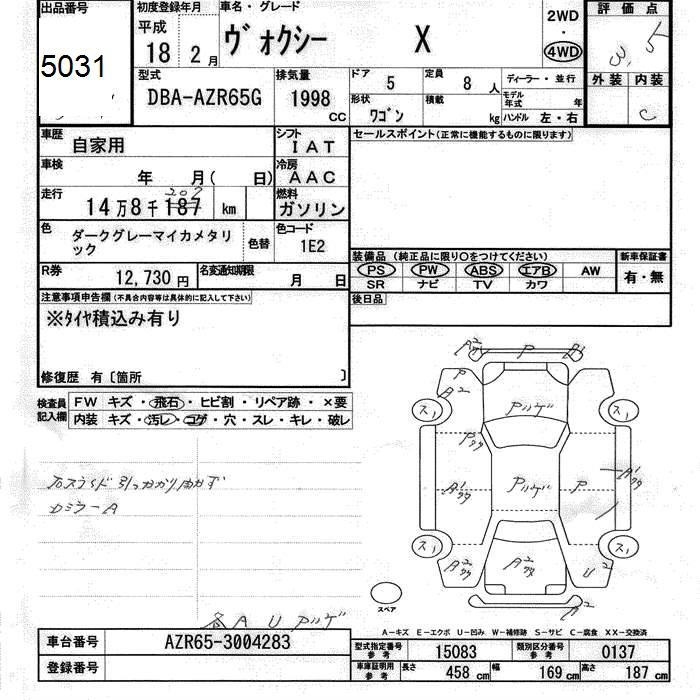 出品番号
5031
初度登録年月
平成
18年 2月
車名・グレード
ヴォクシー X
2WD
・
4WD
評価点
3.5
外装 内装
C
型式
DBA-AZR65G
排気量
1998
CC
ドア 5
定員 8人
ディーラー・並行
形状 ワゴン
積載 kg
モデル年式 年
ハンドル 左・右
車歴
自家用
シフト
IAT
セールスポイント(正常に機能するものに限ります)
車検
年 月( 日)
冷房
AAC
走行
207
14万8千187 km
燃料
ガソリン
色
ダークグレーマイカメタリック
色替
色コード
1E2
装備品 (純正品に限り○をつけてください)
新車保証書
PS PW ABS エアB AW
有・無
SR ナビ TV カワ
R券
12,730円
名変通知期限
月 日
後日品
注意事項申告欄(不具合内容等は具体的に記入して下さい)
※タイヤ積込み有り
修復歴 有〔箇所 〕
検査員記入欄
FW キズ・飛石・ヒビ割・リペア跡・×要
内装 キズ・汚レ・コゲ・穴・スレ・キレ・破レ
A2 P
P A2
スリ スリ
Pツゲ
Pツゲ P
A1
スリ スリ
A2 A2 U2
A2
スペア
A U Pツゲ
A-キズ E-エクボ U-凹み W-補修跡 S-サビ C-腐食 XX-交換済
車台番号
AZR65-3004283
登録番号
型式指定番号 参考
15083
類別区分番号 参考
0137
車庫証明用 参考
長さ 458cm
幅 169cm
高さ 187cm